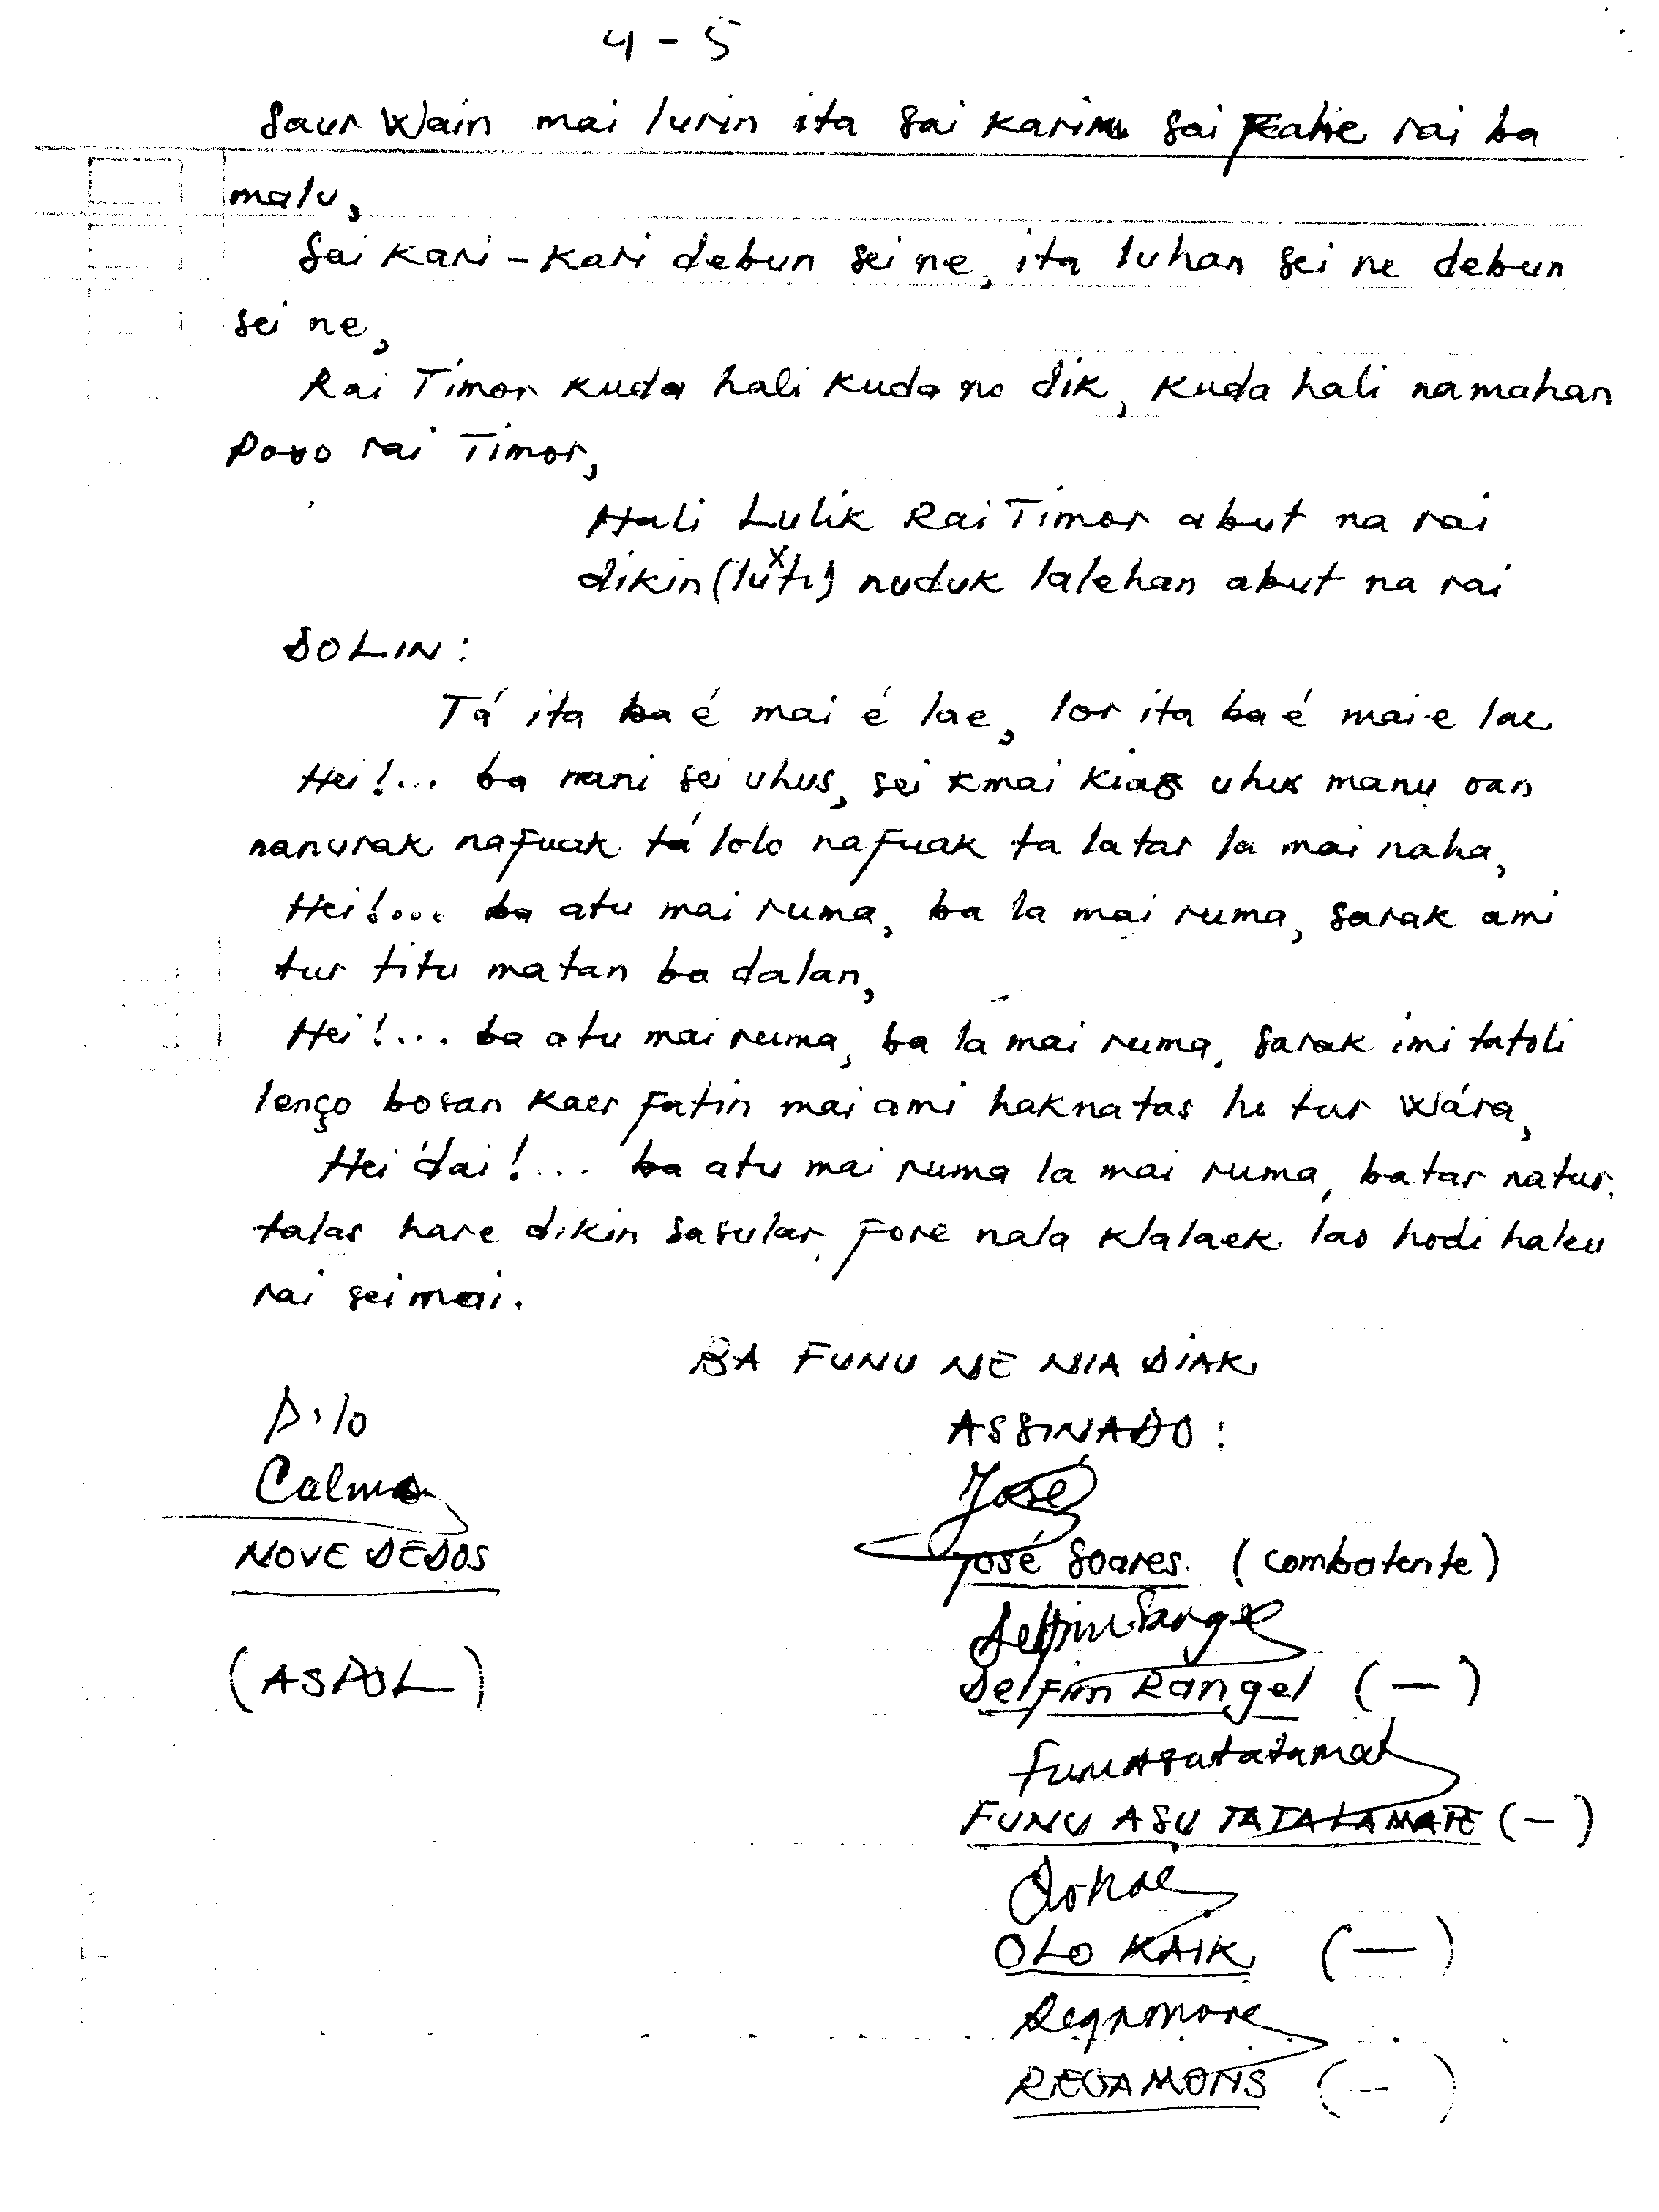 4 - 5
Saur Wain mai lurin ita sai karin sai Feahe rai ba
malu,
Sai kari - kari debun sei ne, ita luhan sei ne debun
sei ne,
Rai Timor kuda hali kuda no dik, kuda hali namahan
Povo rai Timor,
Hali Lulik Rai Timor abut na rai
dikin (lutu) nuduk lalehan abut na rai
SOLIN:
Tá ita ba é mai é lae, lor ita ba é mai e lae
Hei!... ba mani sei uhus, sei kmai uhus manu oan
nanurak nafuak tá lolo nafuak ta latar la mai naha,
Hei!... ba atu mai ruma, ba la mai ruma, sarak ami
tur titu matan ba dalan,
Hei!... ba atu mai ruma, ba la mai ruma, sarak imi tatoli
lenço bosan kaer fatin mai ami haknatas ho tur Wára,
Hei dai!... ba atu mai ruma la mai ruma, batar natur
talas hare dikin sasular, fore nala klalaek lao hodi haleu
rai sei mai.
BA FUNU NE NIA DIAK
P.lo
ASSINADO:
Calma
José
NOVE DEDOS
José Soares. (combatente)
Delfim Rangel
(ASPOL)
Delfim Rangel (—)
Funuasutatamat
FUNU ASU TATALAMATE (—)
OLO KAIK (—)
Regamone
REGAMONS (—)